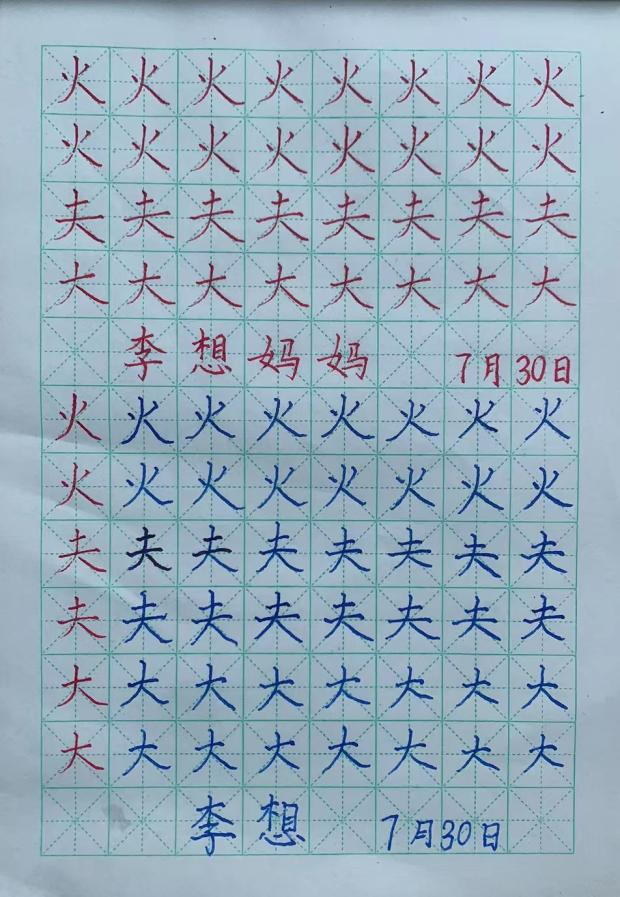 火火火火火火火火
火火火火火火火火
夫夫夫夫夫夫夫夫
大大大大大大大大
李想妈妈 7月30日
火火火火火火火火
火火火火火火火火
夫夫夫夫夫夫夫夫
夫夫夫夫夫夫夫夫
大大大大大大大大
大大大大大大大大
李想 7月30日